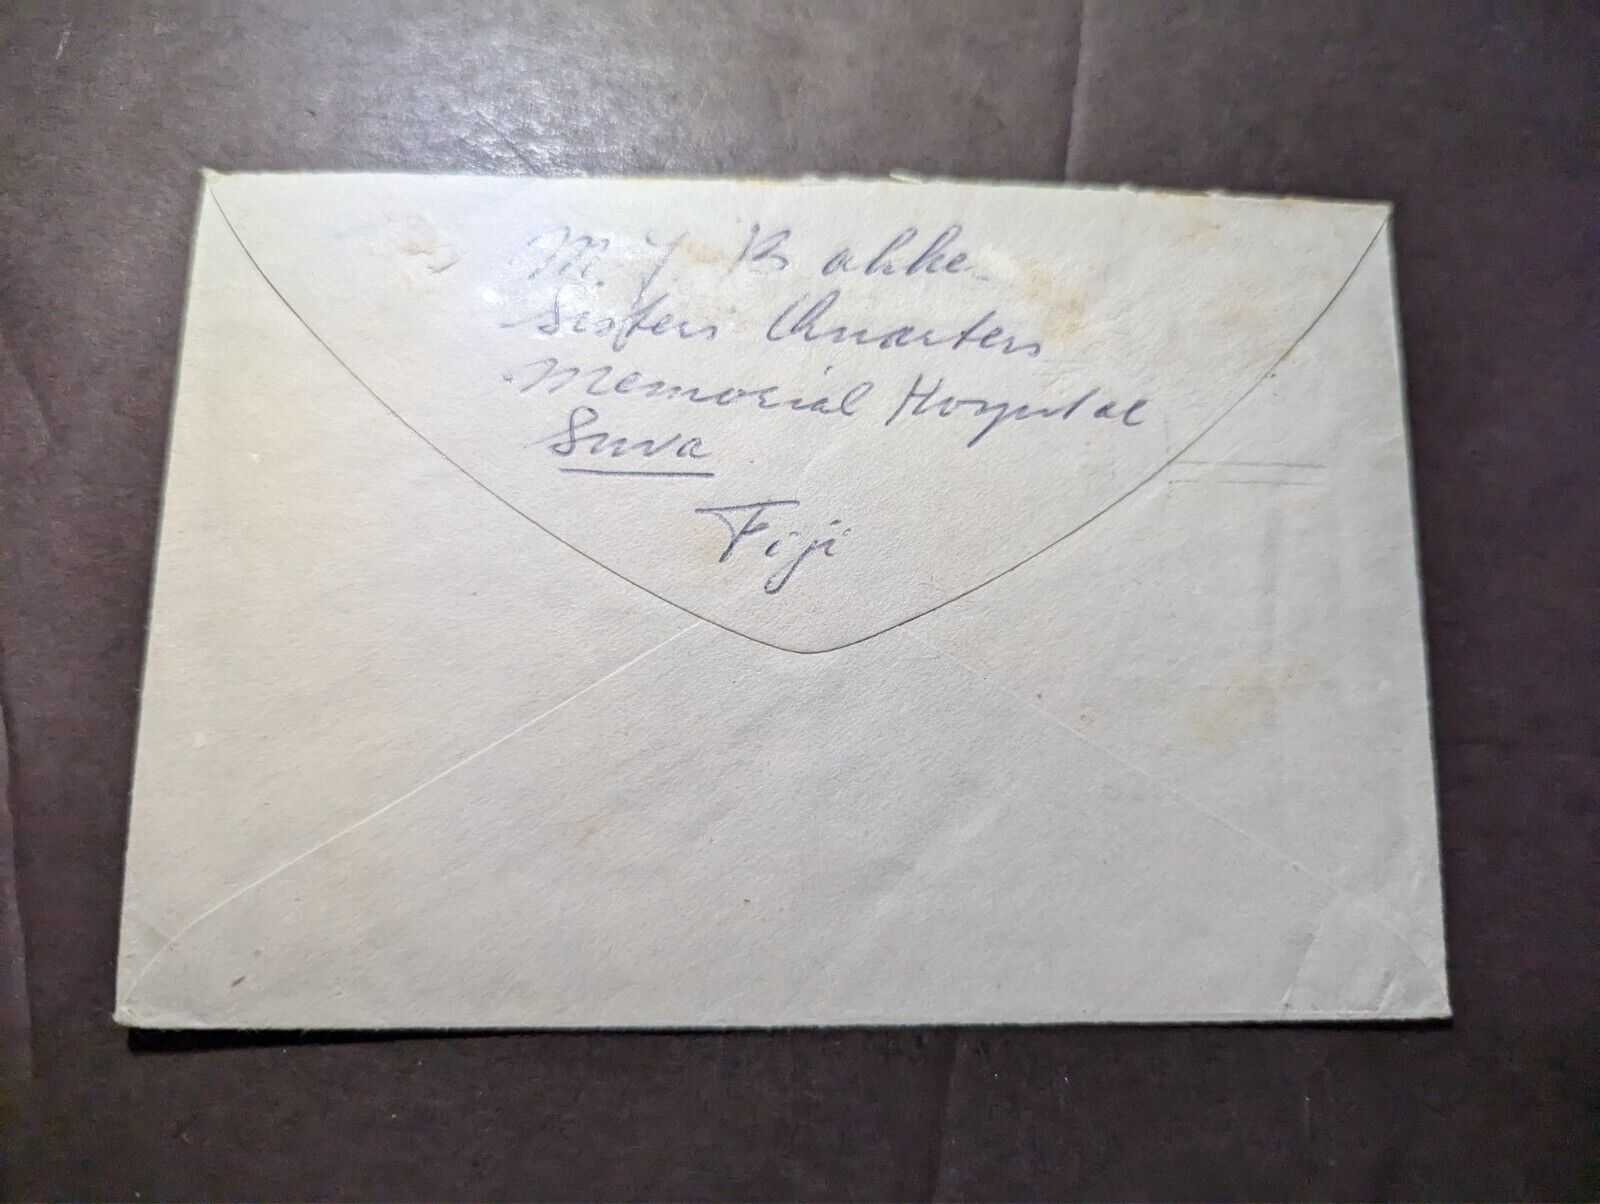 M J Bakke
Sisters Quarters
Memorial Hospital
Suva
Fiji